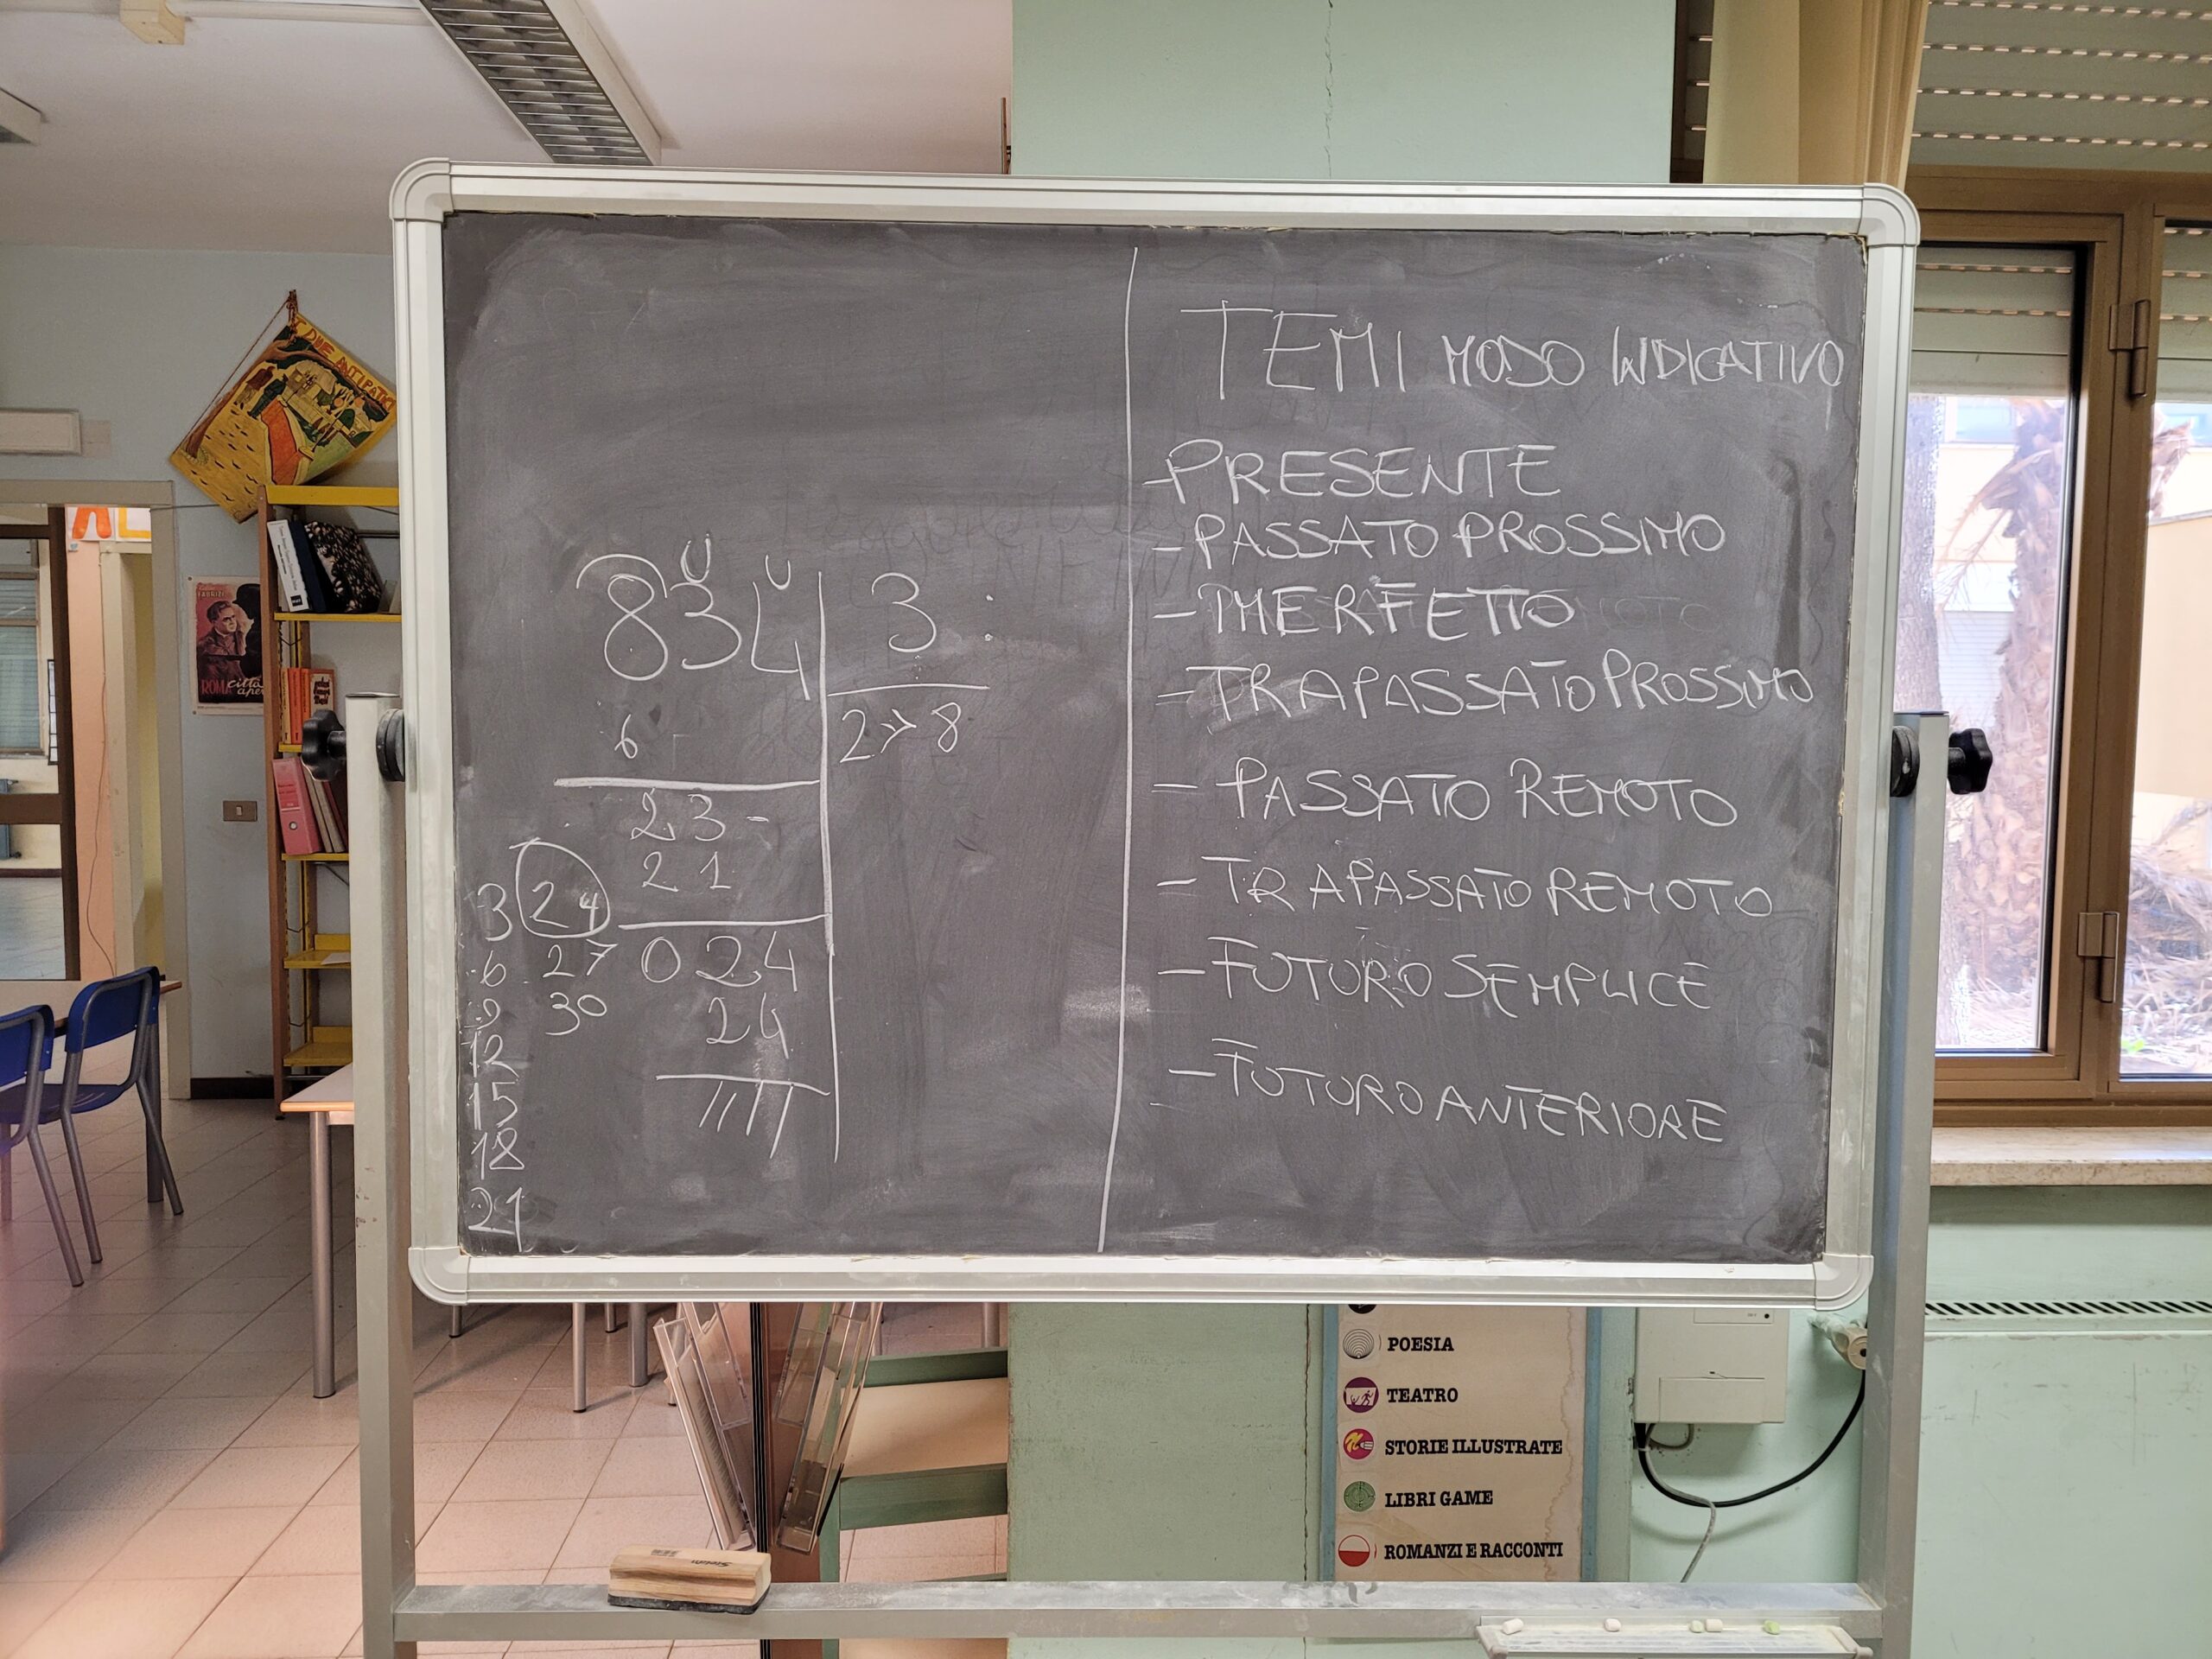 834 3
6
278
23
21
024
24
3 24
6 27
9 30
12
15
18
21
TEMI MODO INDICATIVO
-PRESENTE
-PASSATO PROSSIMO
-TRAPASSATO PROSSIMO
-PASSATO REMOTO
-TRAPASSATO REMOTO
-FUTURO SEMPLICE
-FUTURO ANTERIORE
I DUE ANTIPATICI
FABRIZI
ROMA città
POESIA
TEATRO
STORIE ILLUSTRATE
LIBRI GAME
ROMANZI E RACCONTI